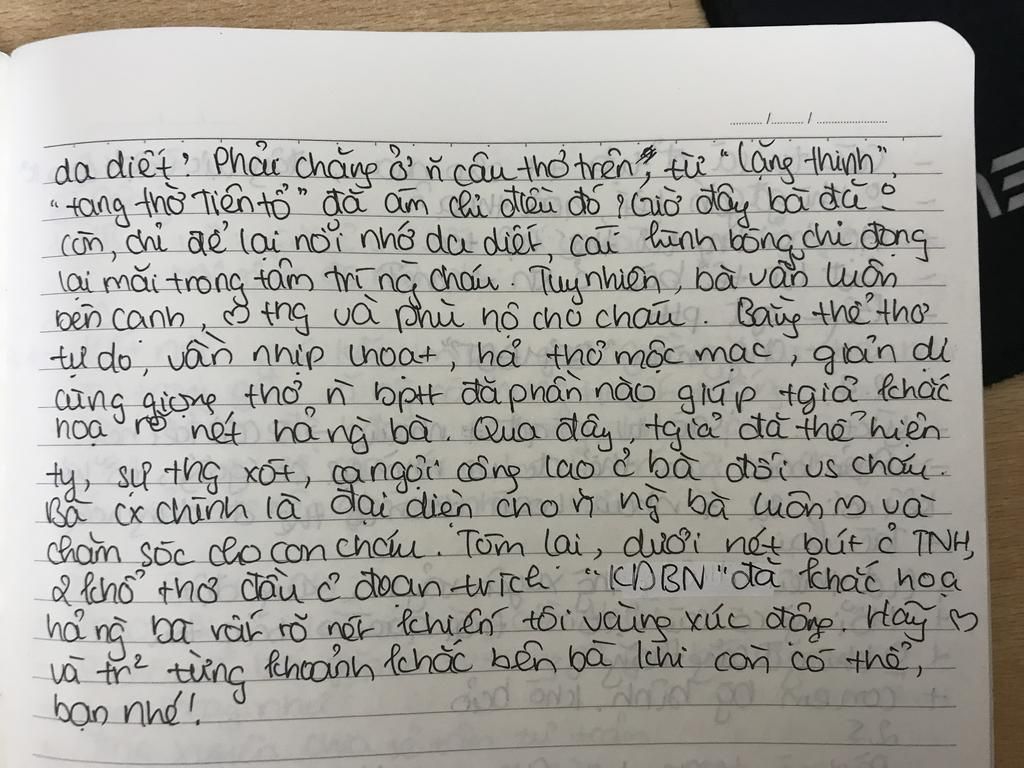 da diết? Phải chăng ở ~ câu thơ trên, từ "lặng thinh",
"tang thờ Tiên tổ" đã ám chỉ điều đó? Giờ đây bà đã o
còn, chỉ để lại nỗi nhớ da diết, cái hình bóng chỉ đọng
lại mãi trong tâm trí ng cháu. Tuy nhiên, bà vẫn luôn
bên cạnh, ♡ thg và phù hộ cho cháu. Bằng thể thơ
tự do, vần nhịp lhoạt, h/ả thơ mộc mạc, giản dị
cùng giọng thơ ~ bptt đã phần nào giúp tgiả khắc
hoạ rõ nét h/ả ng bà. Qua đây, tgiả đã thể hiện
ty, sự thg xót, ca ngợi công lao ở bà đối vs cháu.
Bà cx chính là đại diện cho ~ ng bà luôn ♡ và
chăm sóc cho con cháu. Tóm lại, dưới nét bút ở TNH,
2 khổ thơ đầu ở đoạn trích "KDBN" đã khắc hoạ
h/ả ng bà rất rõ nét khiến tôi vô cùng xúc động. Hãy ♡
và tr² từng khoảnh khắc bên bà khi còn có thể,
bạn nhé!